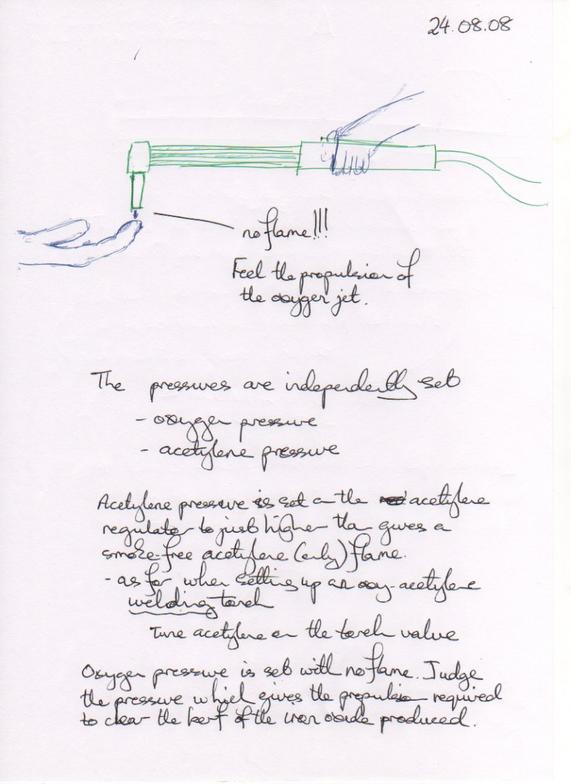 24.08.08
no flame!!!
Feel the propulsion of
the oxygen jet.
The pressures are independently set
- oxygen pressure
- acetylene pressure
Acetylene pressure is set on the acetylene
regulator to just higher than gives a
smoke-free acetylene (only) flame.
- as for when setting up an oxy-acetylene
welding torch
Tune acetylene on the torch valve
Oxygen pressure is set with no flame. Judge
the pressure which gives the propulsion required
to clear the kerf of the iron oxide produced.